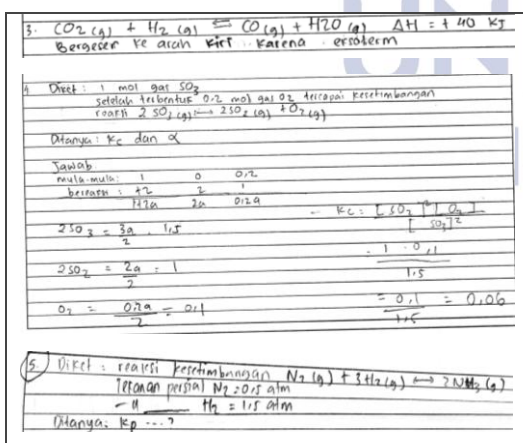 3. CO2 (g) + H2 (g) ⇌ CO (g) + H2O (g) ΔH = + 40 KJ
Bergeser ke arah kiri karena ersoterm
4 Diket : 1 mol gas SO3
setelah terbentuk 0.2 mol gas O2 tercapai kesetimbangan
reaksi 2 SO3 (g) ⟷ 2SO2 (g) + O2 (g)
Ditanya : Kc dan α
Jawab
mula-mula : 1 0 0,2
bereaksi : +2 2 1
2a 0,2a
2SO3 = 3a/2 . 1,5
2SO2 = 2a/2 = 1
O2 = 0,2a/2 = 0,1
- Kc : [SO2]² [O2] / [SO3]²
1 . 0,1 / 1,5
= 0,1 / 1,5 = 0,06
5. Diket : reaksi kesetimbangan N2 (g) + 3H2 (g) ⟷ 2NH3 (g)
Tekanan persial N2 = 0,5 atm
- " H2 = 1,5 atm
Ditanya : Kp ... ?